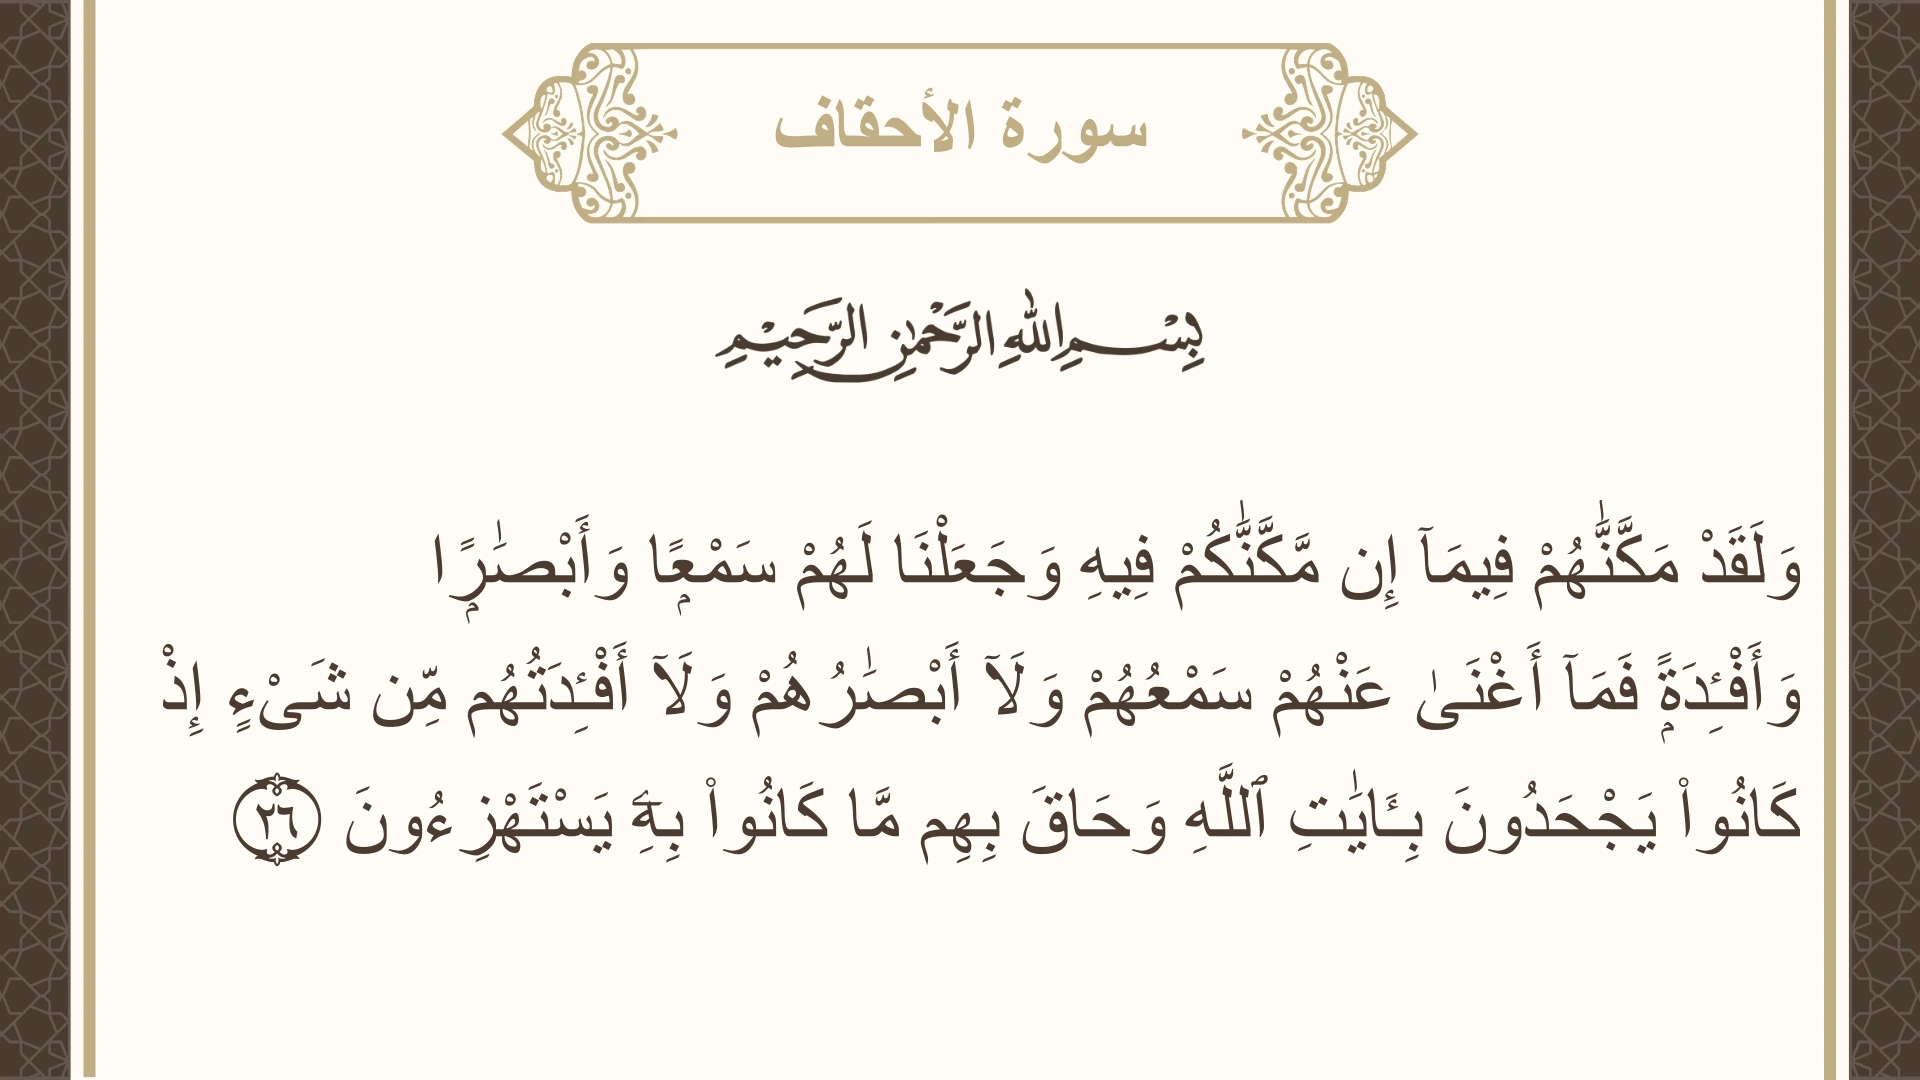 سورة الأحقاف
بِسْمِ اللهِ الرَّحْمٰنِ الرَّحِيْمِ
وَلَقَدْ مَكَّنَّٰهُمْ فِيمَآ إِن مَّكَّنَّٰكُمْ فِيهِ وَجَعَلْنَا لَهُمْ سَمْعًۭا وَأَبْصَٰرًۭا
وَأَفْـِٔدَةًۭ فَمَآ أَغْنَىٰ عَنْهُمْ سَمْعُهُمْ وَلَآ أَبْصَٰرُهُمْ وَلَآ أَفْـِٔدَتُهُم مِّن شَىْءٍ إِذْ
كَانُوا۟ يَجْحَدُونَ بِـَٔايَٰتِ ٱللَّهِ وَحَاقَ بِهِم مَّا كَانُوا۟ بِهِۦ يَسْتَهْزِءُونَ ٢٦